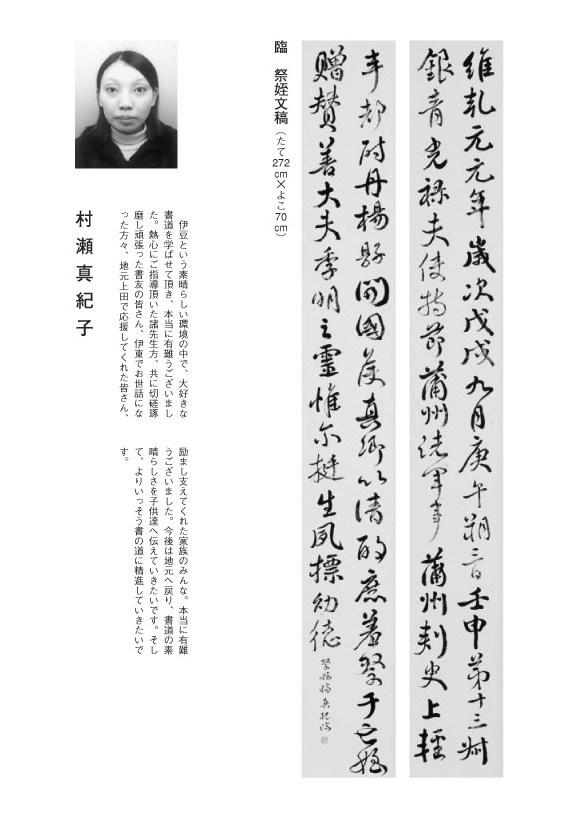 維乾元元年歳次戊戌九月庚午朔三日壬申第十三叔
銀青光禄夫使持節蒲州諸軍事蒲州刺史上軽
車都尉丹楊縣開國侯真卿以清酌庶羞祭于亡姪
贈賛善大夫季明之霊惟尓挺生夙標幼徳
臨　祭姪文稿（たて272cm×よこ70cm）
村瀬真紀子
伊豆という素晴らしい環境の中で、大好きな
書道を学ばせて頂き、本当に有難うございまし
た。熱心にご指導頂いた諸先生方、共に切磋琢
磨し頑張った書友の皆さん、伊東でお世話にな
った方々、地元上田で応援してくれた皆さん、
励まし支えてくれた家族のみんな。本当に有難
うございました。今後は地元へ戻り、書道の素
晴らしさを子供達へ伝えていきたいです。そし
て、よりいっそう書の道に精進していきたいで
す。